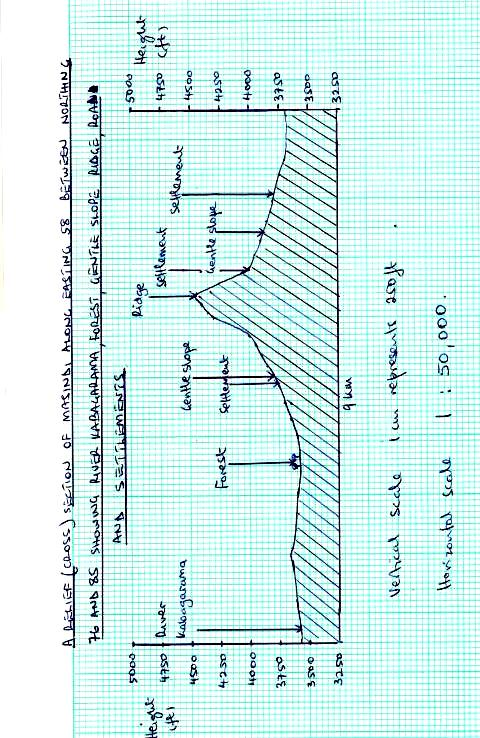 A RELIEF (CROSS) SECTION OF MASINDI ALONG EASTING 58 BETWEEN NORTHING
76 AND 85 SHOWING RIVER KABAGARAMA, FOREST, GENTLE SLOPE RIDGE, ROAD
AND SETTLEMENTS
Height
(ft)
5000
4750
4500
4250
4000
3750
3500
3250
River
Kabagarama
Forest
Gentle slope
Settlement
Ridge
Settlement
Gentle slope
Settlement
Height
(ft)
5000
4750
4500
4250
4000
3750
3500
3250
9 km
Vertical Scale 1cm represents 250ft.
Horizontal scale 1:50,000.